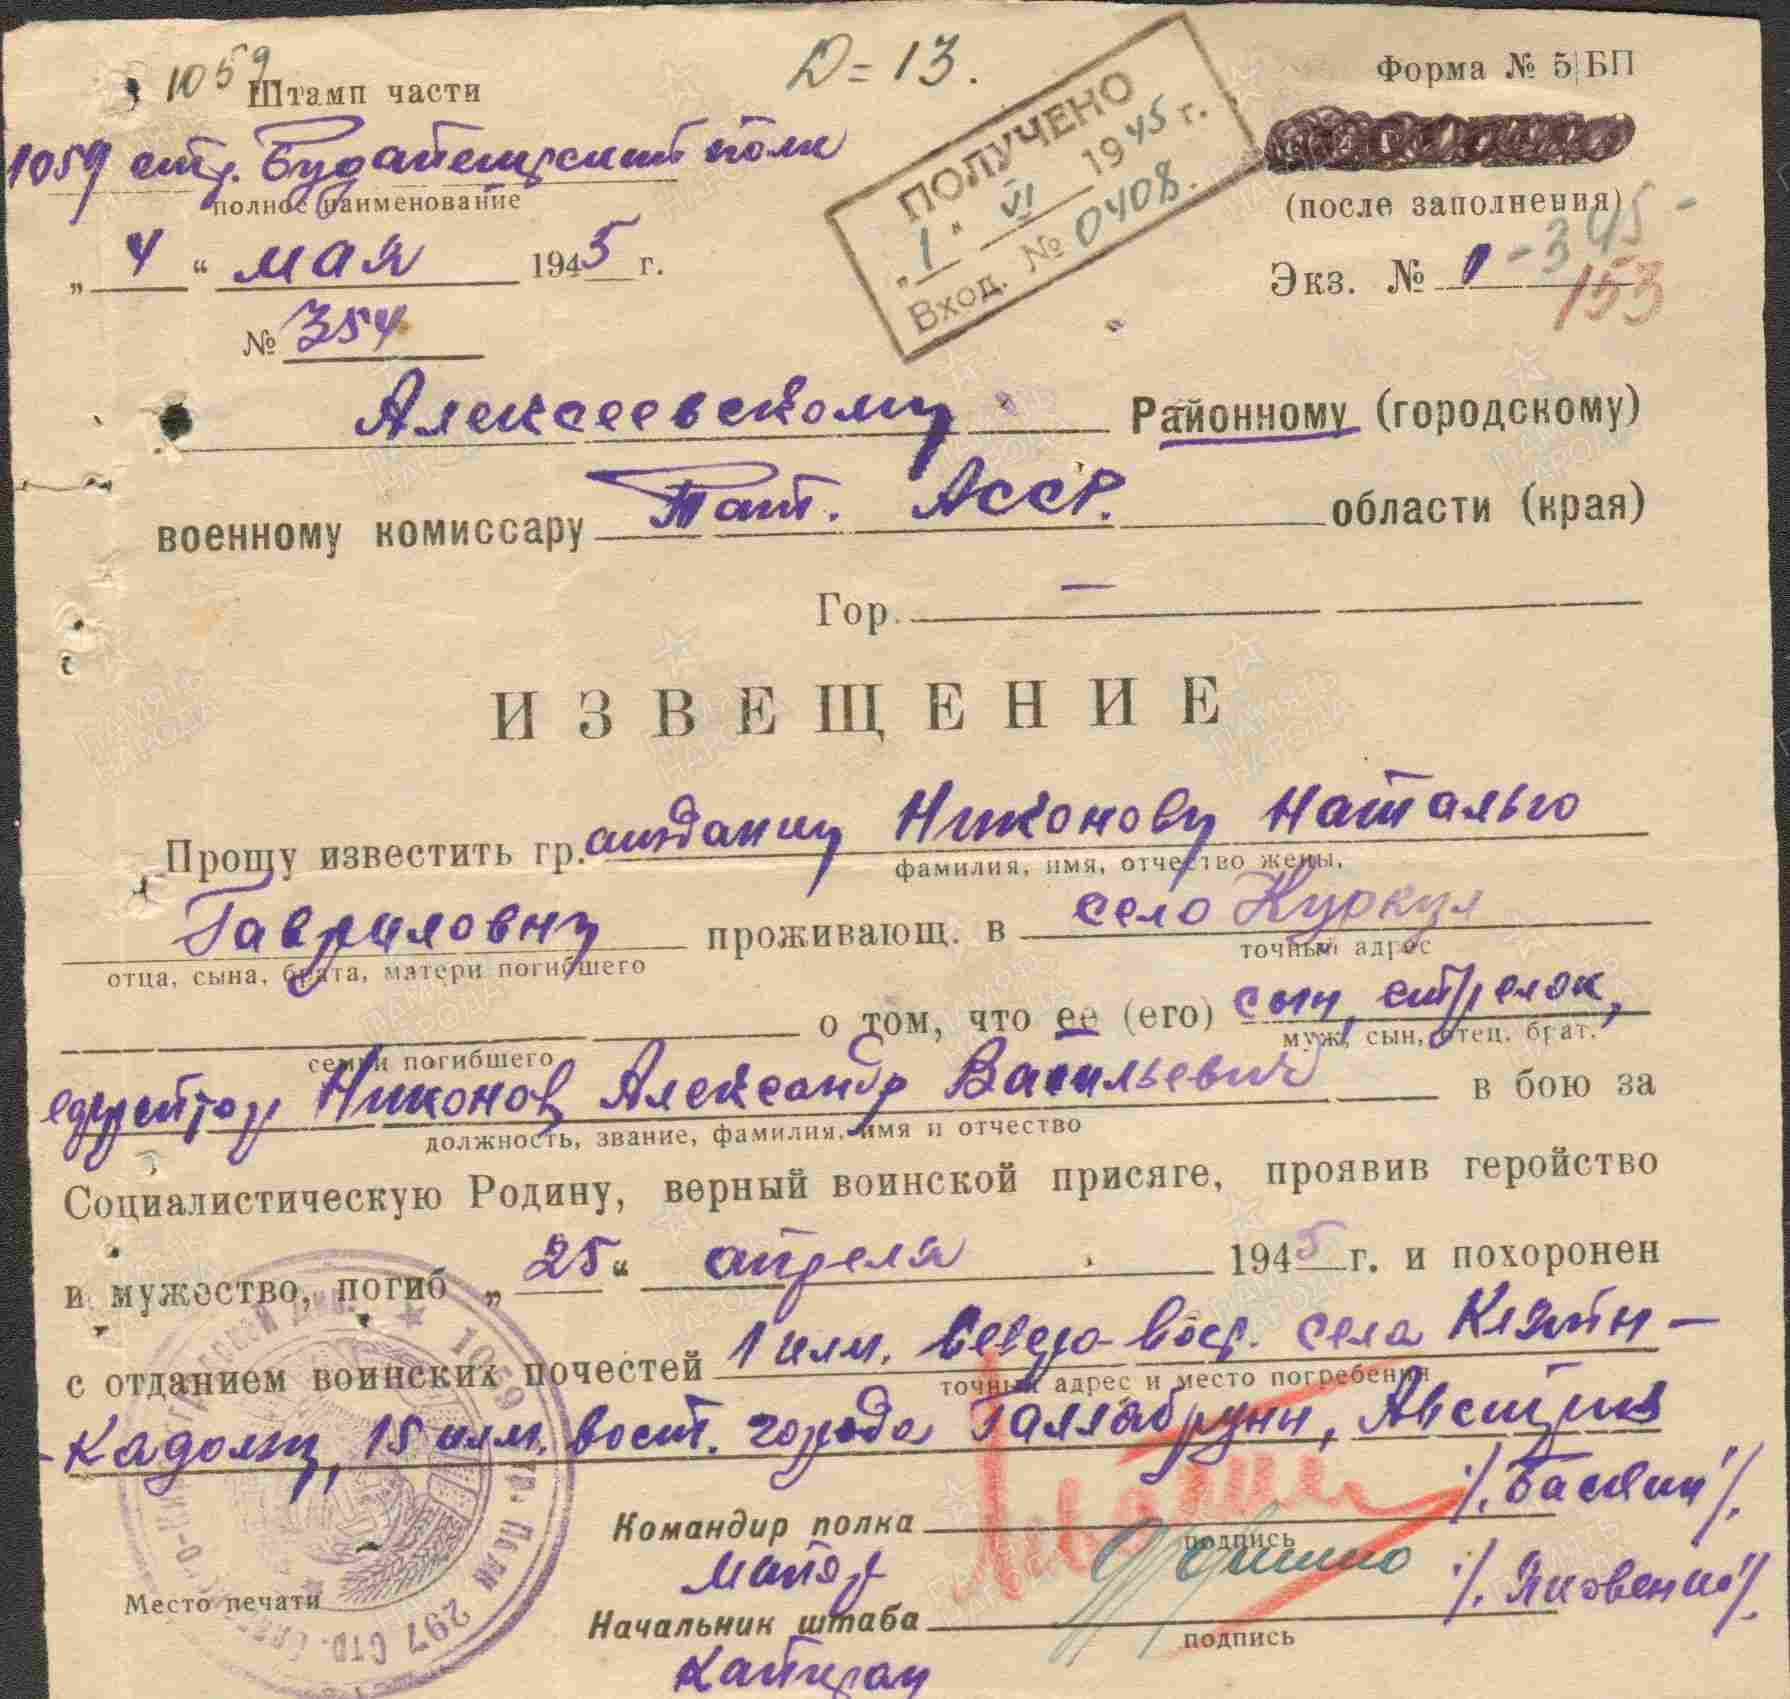 1059
Штамп части
Д=13.
Форма № 5/БП
1059 стр. Будапештский полк
полное наименование
ПОЛУЧЕНО
„1" VI 1945 г.
Вход. № 0408.
(после заполнения)
„4" мая 1945 г.
Экз. № 1
-345-
153
№ 354
Алексеевскому Районному (городскому)
военному комиссару Тат. АССР. области (края)
Гор. —
ИЗВЕЩЕНИЕ
Прошу известить гр. ажданку Никонову Наталью
фамилия, имя, отчество жены,
Гавриловну проживающ. в село Куркул
отца, сына, брата, матери погибшего
точный адрес
о том, что ее (его) сын, стрелок,
семьи погибшего
муж, сын, отец, брат.
ефрейтор Никонов Александр Васильевич в бою за
должность, звание, фамилия, имя и отчество
Социалистическую Родину, верный воинской присяге, проявив геройство
и мужество, погиб „25" апреля 1945 г. и похоронен
с отданием воинских почестей 1 клм. северо-вост. села Кляйн-
точный адрес и место погребения
-Кадольц, 15 клм. вост. города Галлабрунн, Австрия
Командир полка /. Баскин /.
подпись
майор
Место печати
Начальник штаба /. Яковенко /.
подпись
капитан
1059 стр. Полк 297 стр.